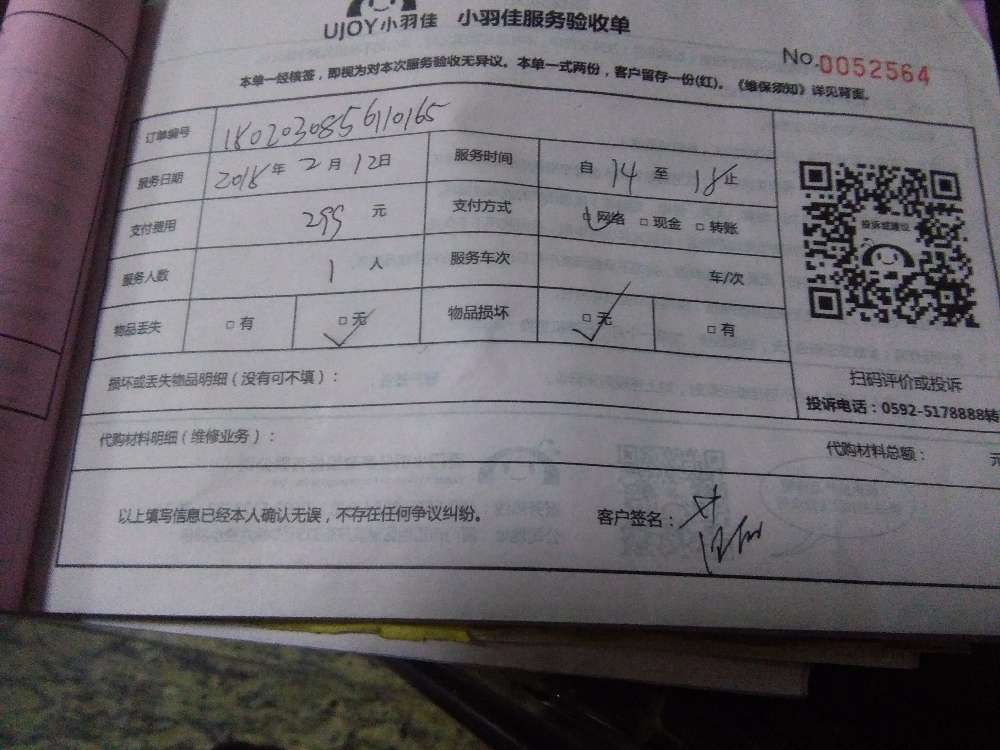 UJOY小羽佳 小羽佳服务验收单
No.0052564
本单一经核签，即视为对本次服务验收无异议。本单一式两份，客户留存一份(红)。《维保须知》详见背面。
订单编号 1802030856110165
服务日期 2018年 2月 12日 服务时间 自 14 至 18 止
支付费用 299 元 支付方式 □网络 □现金 □转账
服务人数 1 人 服务车次 车/次
物品丢失 □有 □无 物品损坏 □无 □有
投诉或建议
扫码评价或投诉
投诉电话：0592-5178888转
损坏或丢失物品明细（没有可不填）：
代购材料明细（维修业务）： 代购材料总额： 元
以上填写信息已经本人确认无误，不存在任何争议纠纷。 客户签名：